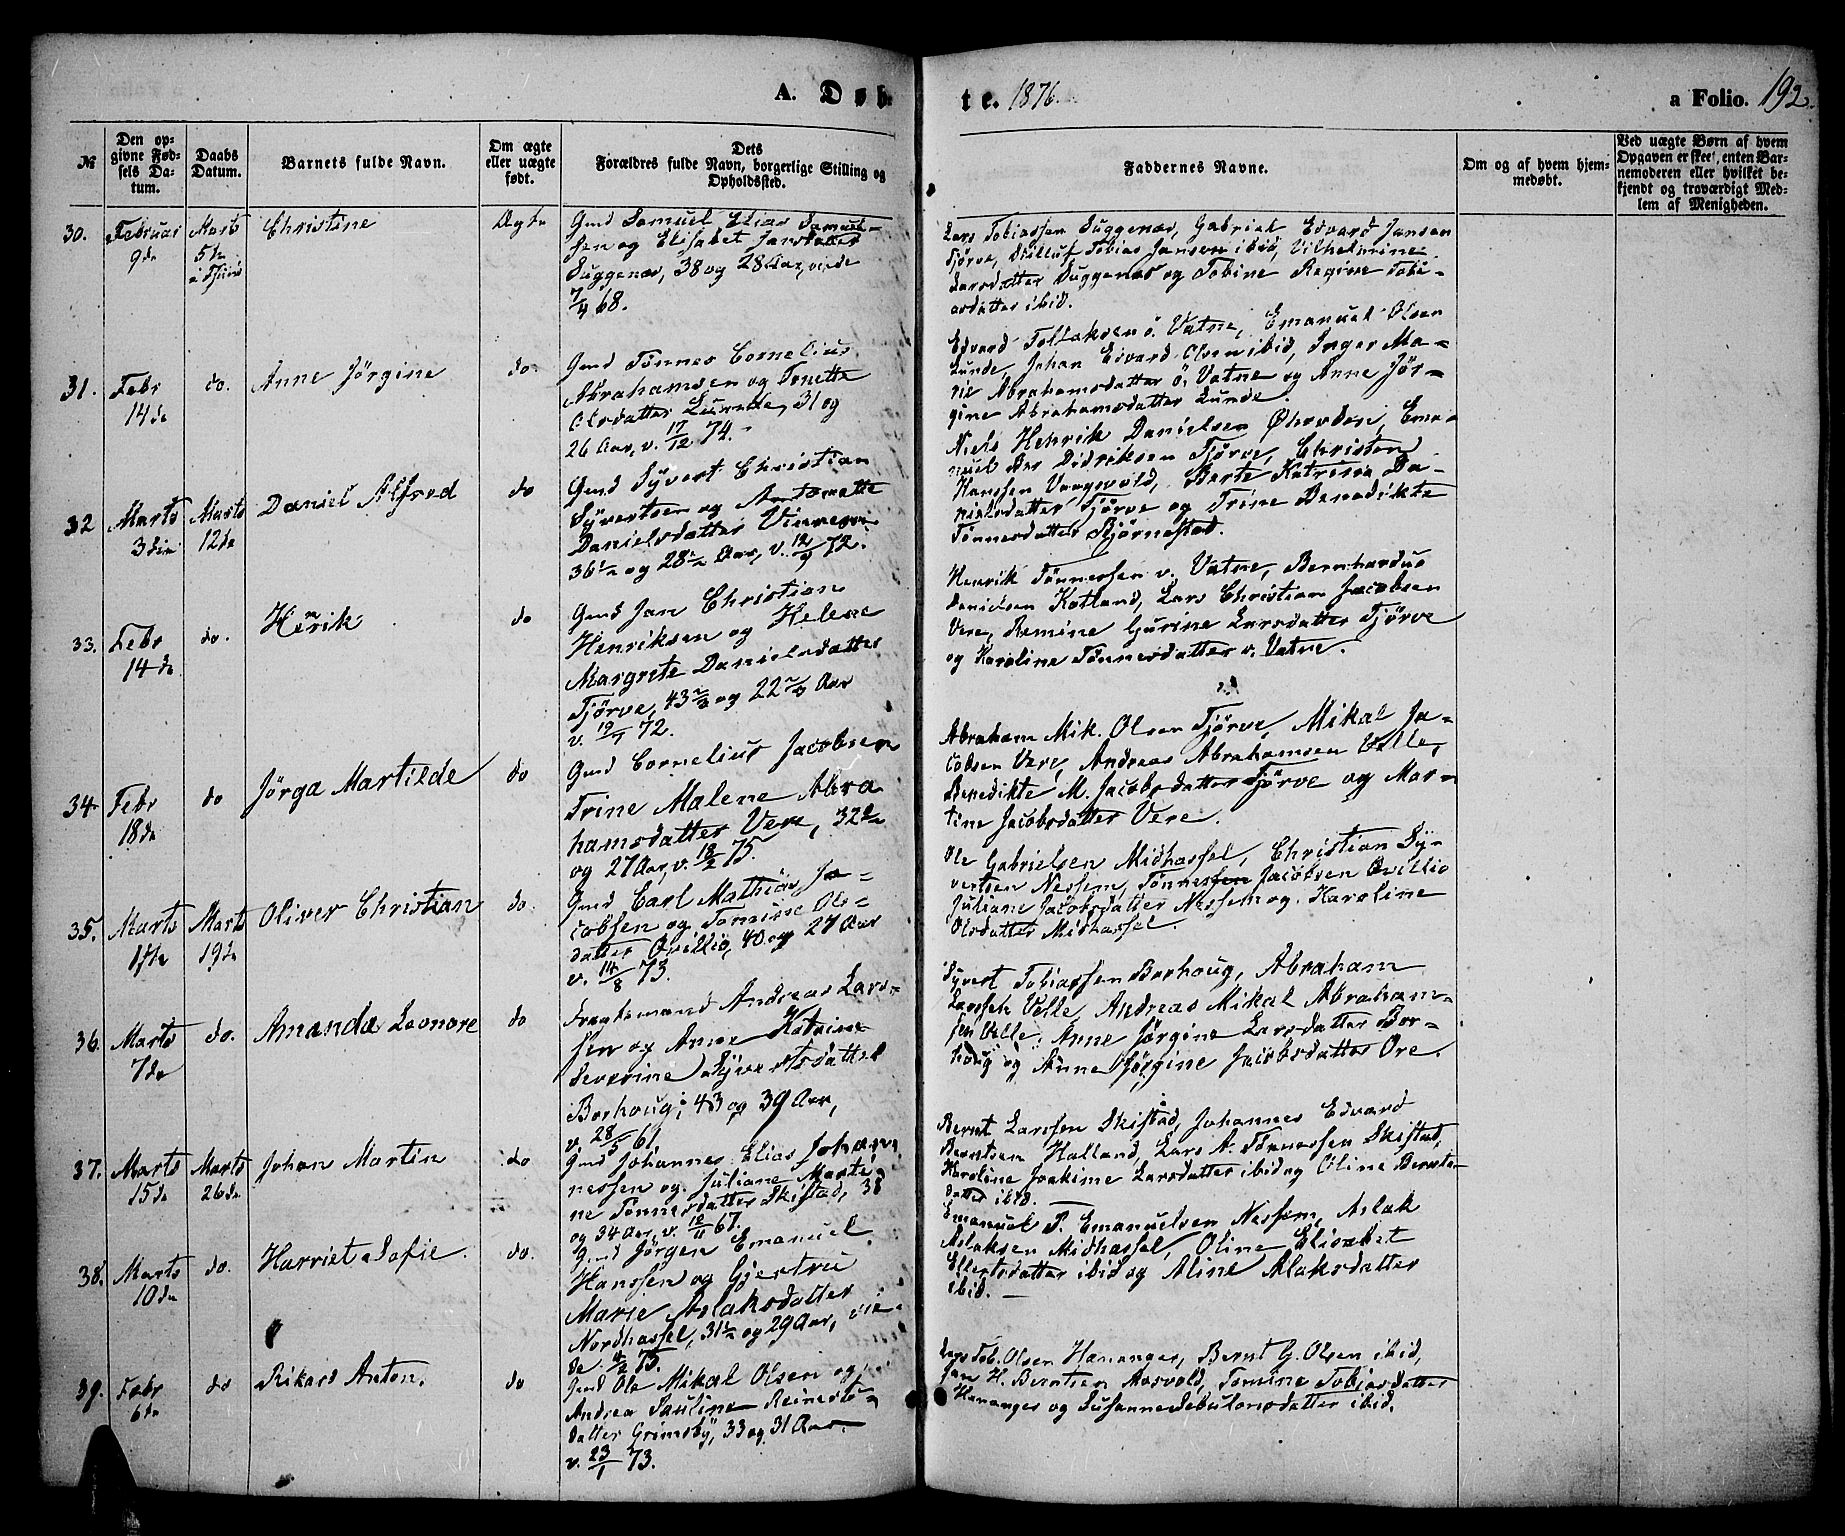 A. Døb-
te. 1876.
a Folio. 192.
№
Den op-
givne Fød-
sels Da-
tum.
Daabs
Datum.
Barnets fulde Navn.
Om ægte
eller uægte
født.
Dets
Forældres fulde Navn, borgerlige Stilling og
Opholdssted.
Faddernes Navne.
Om og af hvem hjem-
medøbt.
Ved uægte Børn af hvem
Opgaven er skeet, enten Bar-
nemoderen eller hvilket be-
kjendt og troværdigt Med-
lem af Menigheden.
30. Februar
9de
Marts
5te
Christine
Ægte
Gmd Samuel Elias Samuel-
sen og Elisabet Jansdatter
Duggenæs, 38 og 28 Aar, viede
7/4 68.
Lars Tobiassen Duggenæs, Gabriel Edvard Jansen
Tjörve, Ditluf Tobias Jansen ibid, Vilhelmine
Larsdatter Duggenæs og Tobine Regine Tobi-
asdatter ibid.
31. Febr
14de
do.
Anne Jörgine
do.
Gmd Tönnes Cornelius
Abrahamsen og Tonette
Olsdatter Lunde, 31 og
26 Aar, v. 17/12 74.
Edvard Tollaksen ö. Vatne, Emanuel Olsen
Lunde, Johan Edvard Olsen ibid, Inger Ma-
rie Abrahamsdatter ö. Vatne og Anne Jör-
gine Abrahamsdatter Lunde.
32 Marts
3die
Marts
12te
Daniel Alfred
do
Gmd Syvert Christian
Syvertsen og Antonette
Danielsdatter
36½ og 28½ Aar, v. 12/9 72.
Niels Henrik Danielsen Ema-
nuel Didriksen Tjörve, Christen
Hanssen Vaagsvold, Berte Katrine Da-
nielsdatter Tjörve og Trine Benedikte
Tönnesdatter Björnestad.
33. Febr
14de
do.
Henrik
do
Gmd Jan Christian
Henriksen og Helene
Margrete Danielsdatter
Tjörve, 43⅔ og 22⅔ Aar
v. 72.
Henrik Tönnessen v. Vatne, Bernhardus
Danielsen Kotland, Lars Christian Jacobsen
Vere, Remine Gurine Larsdatter Tjörve
og Karoline Tönnesdatter v. Vatne.
34. Febr
18de
do
Jörga Martilde
do
Gmd Cornelius Jacobsen
Trine Malene Abra
hamsdatter Vere, 32½
og 27 Aar, v. 18/2 75.
Abraham Mik. Olsen Tjörve, Mikal Ja-
cobsen Vere, Andreas Abrahamsen Velle,
Benedikte M. Jacobsdatter Tjörve og Mar-
tine Jacobsdatter Vere.
35. Marts
Marts
19de
Oliver Christian
do.
Gmd Carl Mathias Ja-
cobsen og Tomine Ols-
datter Qvillio, 40 og 27 Aar
v. 14/8 73.
Ole Gabrielsen Midhassel, Christian Sy-
vertsen Nessem, Tönnessen Jacobsen Qvillio
Juliane Jacobsdatter Nessem og Karoline
Olsdatter Midhassel.
36. Marts
7de
do.
Amanda Leonore
do
Fragtemand Andreas Lars-
sen og Anne Katrine
Severine Syvertsdatter
Borhoug, 43 og 39 Aar,
v. 28/5 61.
Syvert Tobiassen Borhoug, Abraham
Larssen Velle, Andreas Mikal Abraham-
sen Velle, Anne Jörgine Larsdatter Bor-
houg og Anne Jörgine Jacobsdatter Ore.
37. Marts
15de
Marts
26de
Johan Martin
do
Gmd Johannes Elias Johan-
nessen og Juliane Marti-
ne Tönnesdatter Skistad, 38
og 34 Aar, v. 67.
Bernt Larssen Skistad, Johannes Edvard
Berntsen Halland, Lars A. Tönnessen Skistad,
Karoline Joakime Larsdatter ibid og Oline Bernts-
datter ibid.
38. Marts
10de
do.
Harriet Sofie.
do.
Gmd Jörgen Emanuel
Hanssen og Gjertru
Marie Aslaksdatter
Nordhassel, 31½ og 29 Aar, vie-
de 4/2 75.
Emanuel T. Emanuelsen Nessem, Aslak
Aslaksen Midhassel, Oline Elisabet
Ellertsdatter ibid og Aline Alaksdatter
ibid.
39. Febr
6te
do
Rikard Anton.
do
Gmd Ole Mikal Olsen og
Andrea Pauline Reinerts-
datter Grimsby, 33 og 31 Aar
v. 23/1 73.
Lars Tob. Olsen Hananger, Bernt G. Olsen ibid,
Jan H. Berntsen Mosvold, Tomine Tobiasdatter
Hananger og Susanne Sebulonsdatter ibid.